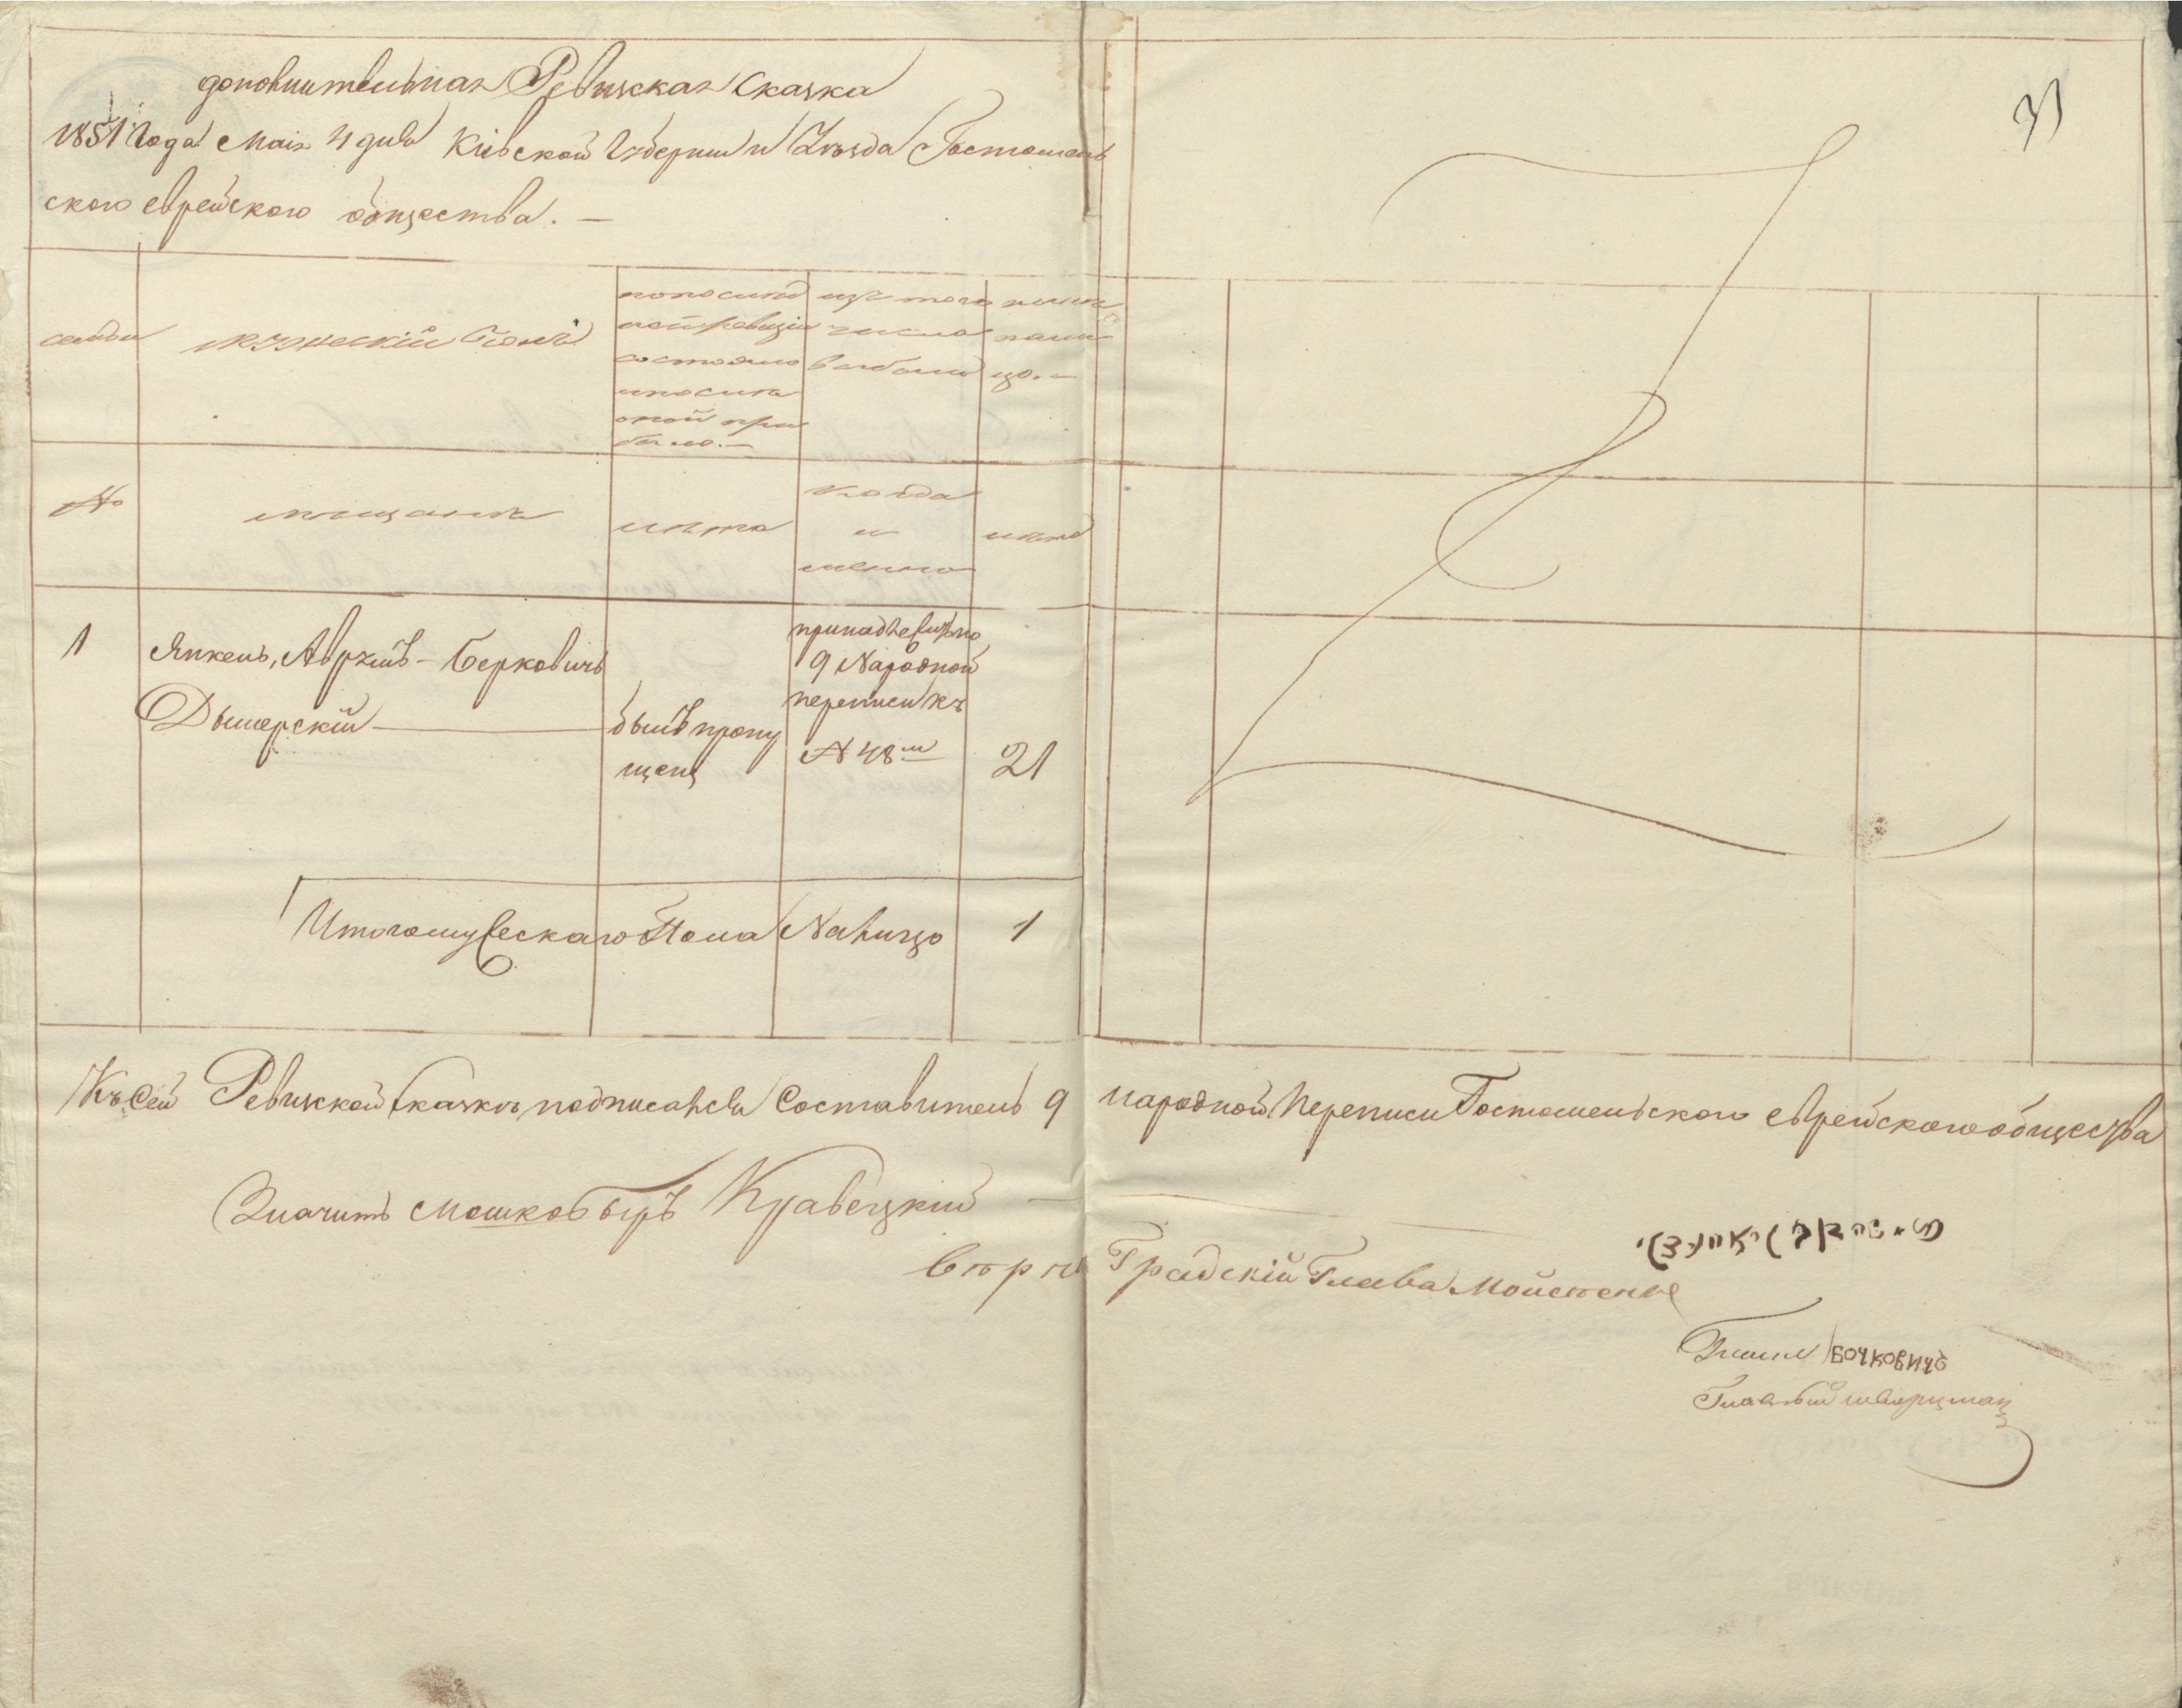 дополнительная Ревизская Сказка
1851 Года Маія 4 дня Кіевской Губерніи и Уѣзда Гостомель
ского еврейского общества. —
семьи
мужескій Полъ
по последней ревизіи состояло и после оной прибыло. —
изъ того числа выбыло
ныне на лицо. —
№
мещане
лѣта
когда именно
лѣта
1
Янкель, Аврумъ - Берковичъ
Дымерскій
былъ пропу
щенъ
принадлежитъ по
9 Народной
переписи къ
№ 48
21
Итого мужескаго Пола На лицо 1
Къ Сей Ревизкой Сказкѣ подписался Составитель 9 народной Переписи Гостомельского еврейского общества
Значитъ Мошко Кравецкій —
вѣрно Градскій Глава
Гласн БОЧКОВИЧЪ
Гласный